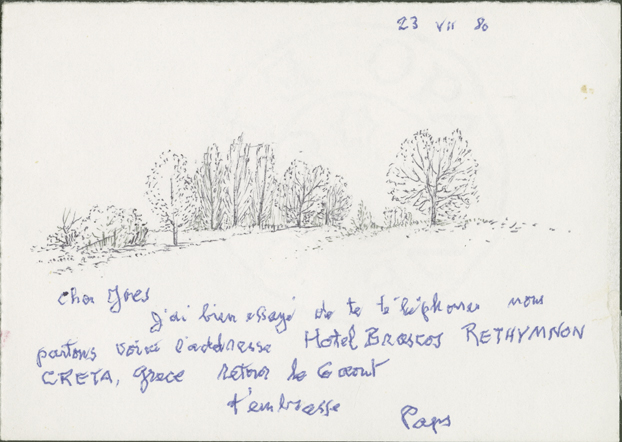 23 VII 80
Cher Yves
J'ai bien essayé de te téléphoner nous
partons voici l'addresse Hotel Brascos RETHYMNON
CRETA, Grece retour le 6 aout
t'embrasse
Paps